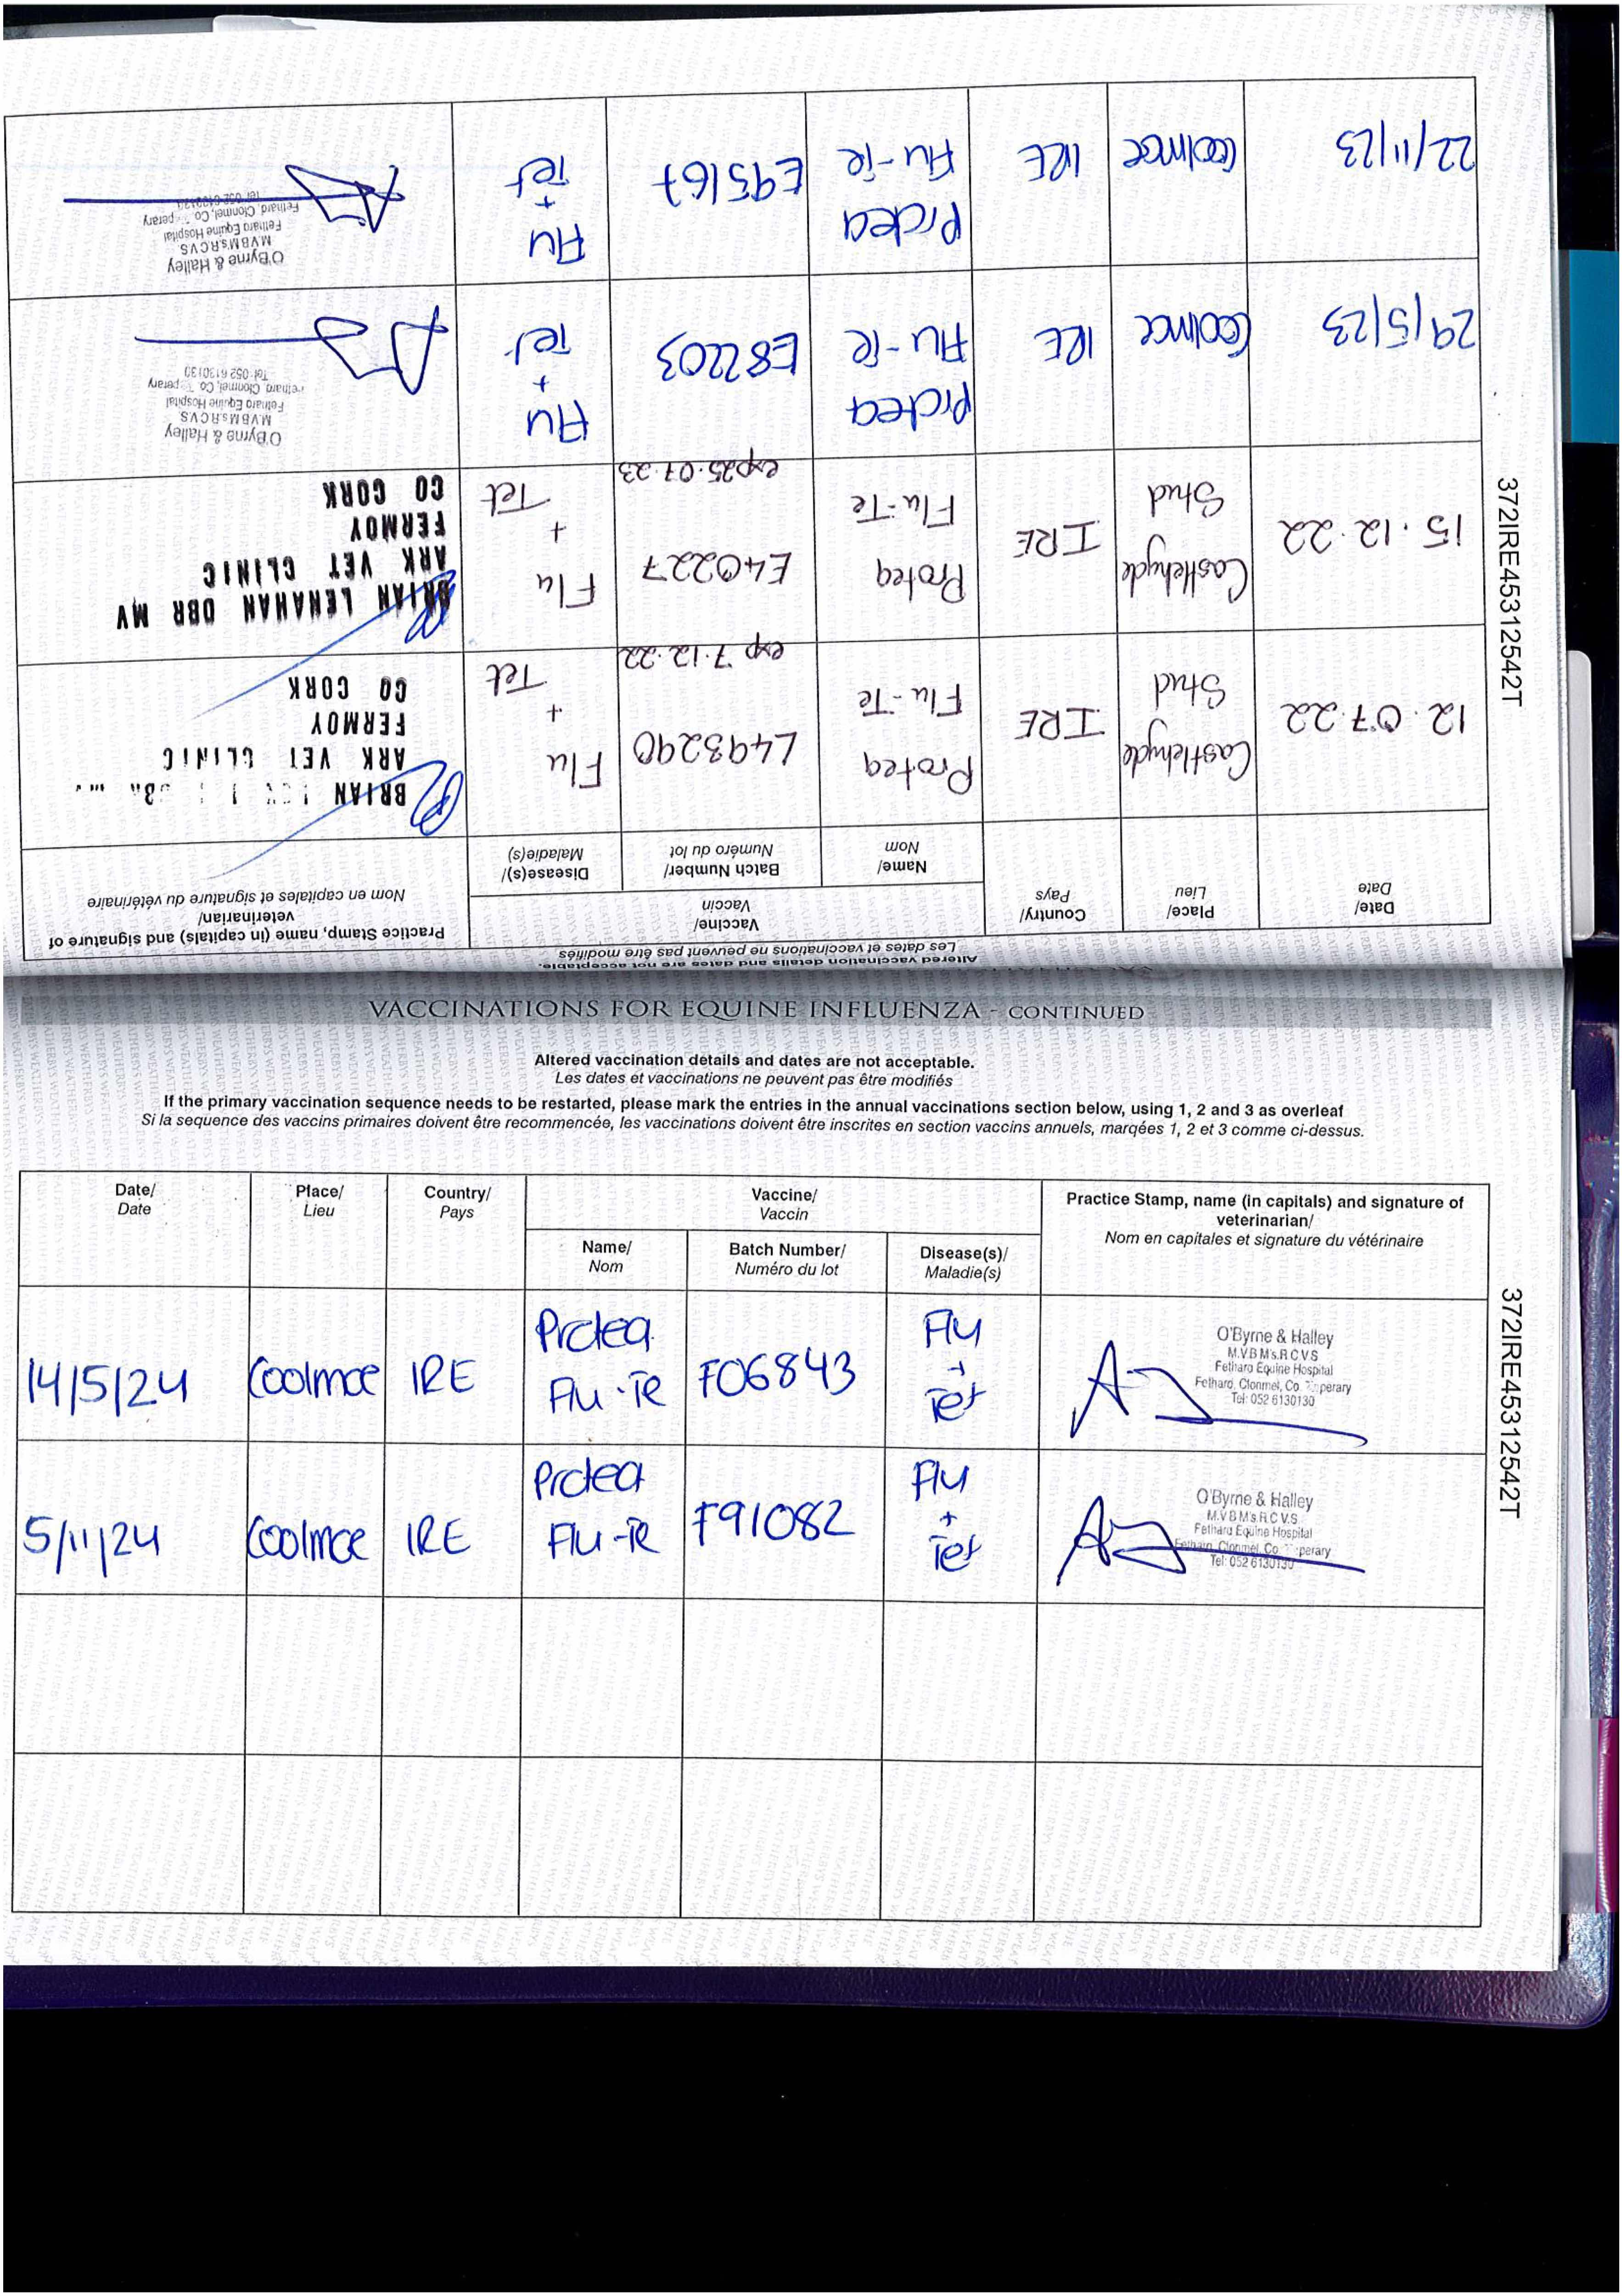 Altered vaccination details and dates are not acceptable.
Les dates et vaccinations ne peuvent pas être modifiés
Date/
Date
Place/
Lieu
Country/
Pays
Vaccine/
Vaccin
Name/
Nom
Batch Number/
Numéro du lot
Disease(s)/
Maladie(s)
Practice Stamp, name (in capitals) and signature of
veterinarian/
Nom en capitales et signature du vétérinaire
12.07.22
Castlehyde
Stud
IRE
Proteq
Flu-Te
L493290
exp 7.12.22
Flu
+
Tet
BRIAN
ARK VET CLINIC
FERMOY
CO CORK
15.12.22
Castlehyde
Stud
IRE
Proteq
Flu-Te
E40227
exp 25.07.23
Flu
+
Tet
BRIAN LENAHAN DBR MV
ARK VET CLINIC
FERMOY
CO CORK
29/5/23
Coolmoe
IRE
Proteq
Flu-Te
E82203
Flu
+
Tet
O'Byrne & Halley
M.V.B M's.R.C.V.S
Fethard Equine Hospital
Fethard, Clonmel, Co. perary
Tel: 052 6130130
22/11/23
Coolmoe
IRE
Proteq
Flu-Te
E95167
Flu
+
Tet
O'Byrne & Halley
M.V.B M's.R.C.V.S
Fethard Equine Hospital
Fethard, Clonmel, Co. perary
372IRE45312542T
VACCINATIONS FOR EQUINE INFLUENZA - CONTINUED
Altered vaccination details and dates are not acceptable.
Les dates et vaccinations ne peuvent pas être modifiés
If the primary vaccination sequence needs to be restarted, please mark the entries in the annual vaccinations section below, using 1, 2 and 3 as overleaf
Si la sequence des vaccins primaires doivent être recommencée, les vaccinations doivent être inscrites en section vaccins annuels, marqées 1, 2 et 3 comme ci-dessus.
Date/
Date
Place/
Lieu
Country/
Pays
Vaccine/
Vaccin
Name/
Nom
Batch Number/
Numéro du lot
Disease(s)/
Maladie(s)
Practice Stamp, name (in capitals) and signature of
veterinarian/
Nom en capitales et signature du vétérinaire
14/5/24
Coolmoe
IRE
Proteq
Flu-Te
F06843
Flu
+
Tet
O'Byrne & Halley
M.V.B M's.R.C.V.S
Fethard Equine Hospital
Fethard, Clonmel, Co. perary
Tel: 052 6130130
5/11/24
Coolmoe
IRE
Proteq
Flu-Te
F91082
Flu
+
Tet
O'Byrne & Halley
M.V.B M's.R.C.V.S
Fethard Equine Hospital
Fethard, Clonmel, Co. perary
Tel: 052 6130130
372IRE45312542T